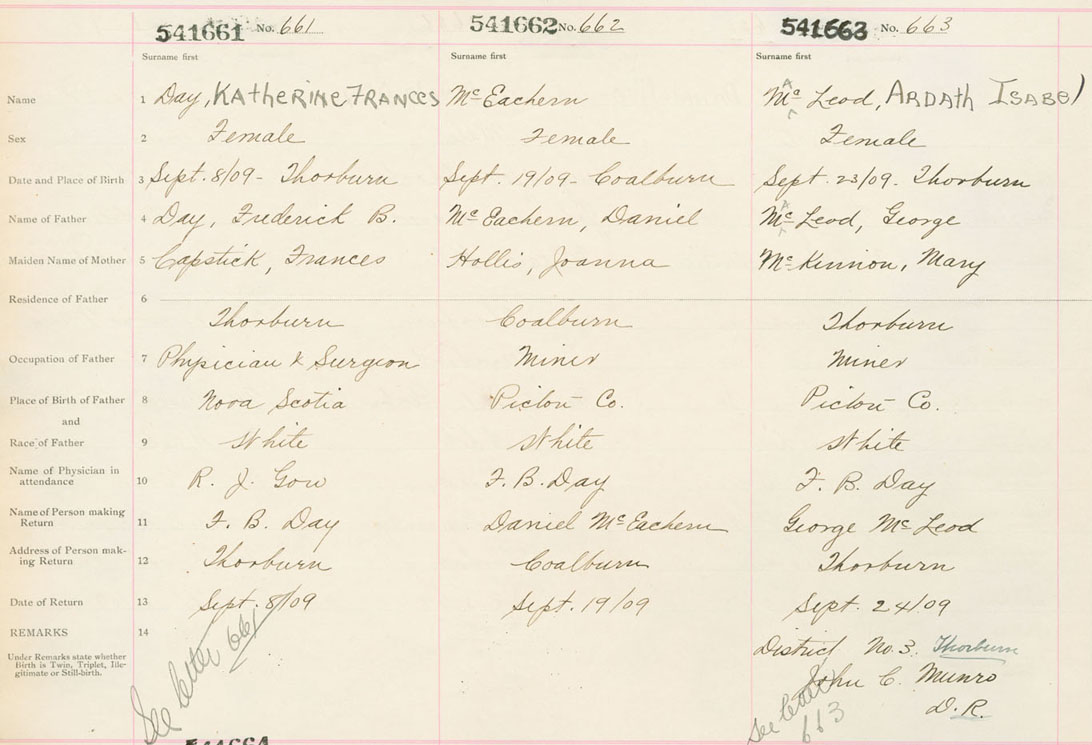 541661 No. 661 541662 No. 662 541663 No. 663
Surname first Surname first Surname first
Name 1 Day, KAtHERINE FRANCES McEachern McLeod, ARDATH ISABEl
A
Sex 2 Female Female Female
Date and Place of Birth 3 Sept. 8/09 - Thorburn Sept. 19/09 - Coalburn Sept. 23/09. Thorburn
Name of Father 4 Day, Frederick B. McEachern, Daniel McLeod, George
A
Maiden Name of Mother 5 Capstick, Frances Hollis, Joanna McKinnon, Mary
Residence of Father 6
Thorburn Coalburn Thorburn
Occupation of Father 7 Physician & Surgeon Miner Miner
Place of Birth of Father 8 Nova Scotia Pictou Co. Pictou Co.
and
Race of Father 9 White White White
Name of Physician in
attendance 10 R. J. Gow F. B. Day F. B. Day
Name of Person making
Return 11 F. B. Day Daniel McEachern George McLeod
Address of Person mak-
ing Return 12 Thorburn Coalburn Thorburn
Date of Return 13 Sept. 8/09 Sept. 19/09 Sept. 24/09
REMARKS 14
Under Remarks state whether
Birth is Twin, Triplet, Ille-
gitimate or Still-birth.
See letter 661
District No. 3. Thorburn
John C. Munro
D. R.
See letter
663
541664